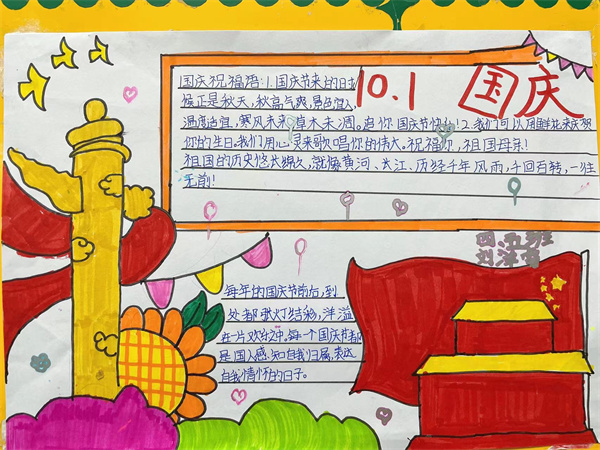 10.1 国庆
国庆祝福语:1.国庆节来的日
候正是秋天,秋高气爽,景色宜人
温度适宜,寒风未来,草木未凋。追你国庆节快乐!2.我们可以用鲜花来庆贺
你的生日。我们用心灵来歌唱你的伟大。祝福你,祖国母亲!
祖国的历史悠长绵久,就像黄河、长江,历经千年风雨,千回百转,一往
无前!
每年的国庆节前后,到
处都张灯结彩,洋溢
在一片欢乐之中,每一个国庆节都
是国人感知自我归属,表达
自我情怀的日子。
四 班
刘泽